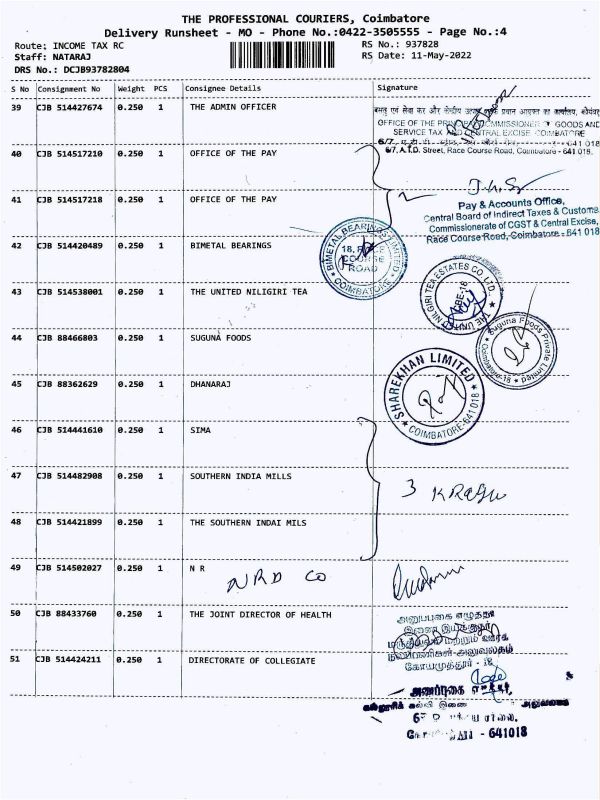 THE PROFESSIONAL COURIERS, Coimbatore
Delivery Runsheet - MO - Phone No.:0422-3505555 - Page No.:4
Route: INCOME TAX RC
RS No.: 937828
Staff: NATARAJ
RS Date: 11-May-2022
DRS No.: DCJB93782804
S No Consignment No Weight PCS Consignee Details Signature
39 CJB 514427674 0.250 1 THE ADMIN OFFICER
OFFICE OF THE PRINCIPAL COMMISSIONER OF GOODS AND
SERVICE TAX AND CENTRAL EXCISE COIMBATORE
6/7, A.T.D. Street, Race Course Road, Coimbatore - 641 018.
40 CJB 514517210 0.250 1 OFFICE OF THE PAY
41 CJB 514517218 0.250 1 OFFICE OF THE PAY
Pay & Accounts Office,
Central Board of Indirect Taxes & Customs
Commissionerate of CGST & Central Excise,
Race Course Road, Coimbatore - 641 018
42 CJB 514420489 0.250 1 BIMETAL BEARINGS
BIMETAL BEARINGS LIMITED
18, RACE
COURSE
ROAD
COIMBATORE
43 CJB 514538001 0.250 1 THE UNITED NILIGIRI TEA
THE UNITED NILGIRI TEA ESTATES CO. LTD.
CBE-18
44 CJB 88466803 0.250 1 SUGUNA FOODS
Suguna Foods Private Limited
Coimbatore-18
45 CJB 88362629 0.250 1 DHANARAJ
SHAREKHAN LIMITED
COIMBATORE-641 018
46 CJB 514441610 0.250 1 SIMA
47 CJB 514482908 0.250 1 SOUTHERN INDIA MILLS
3 K RAGU
48 CJB 514421899 0.250 1 THE SOUTHERN INDAI MILS
49 CJB 514502027 0.250 1 N R
NRD CO
50 CJB 88433760 0.250 1 THE JOINT DIRECTOR OF HEALTH
அனுப்புகை எழுத்தர்
கோயமுத்தூர் - 18
51 CJB 514424211 0.250 1 DIRECTORATE OF COLLEGIATE
- 641018